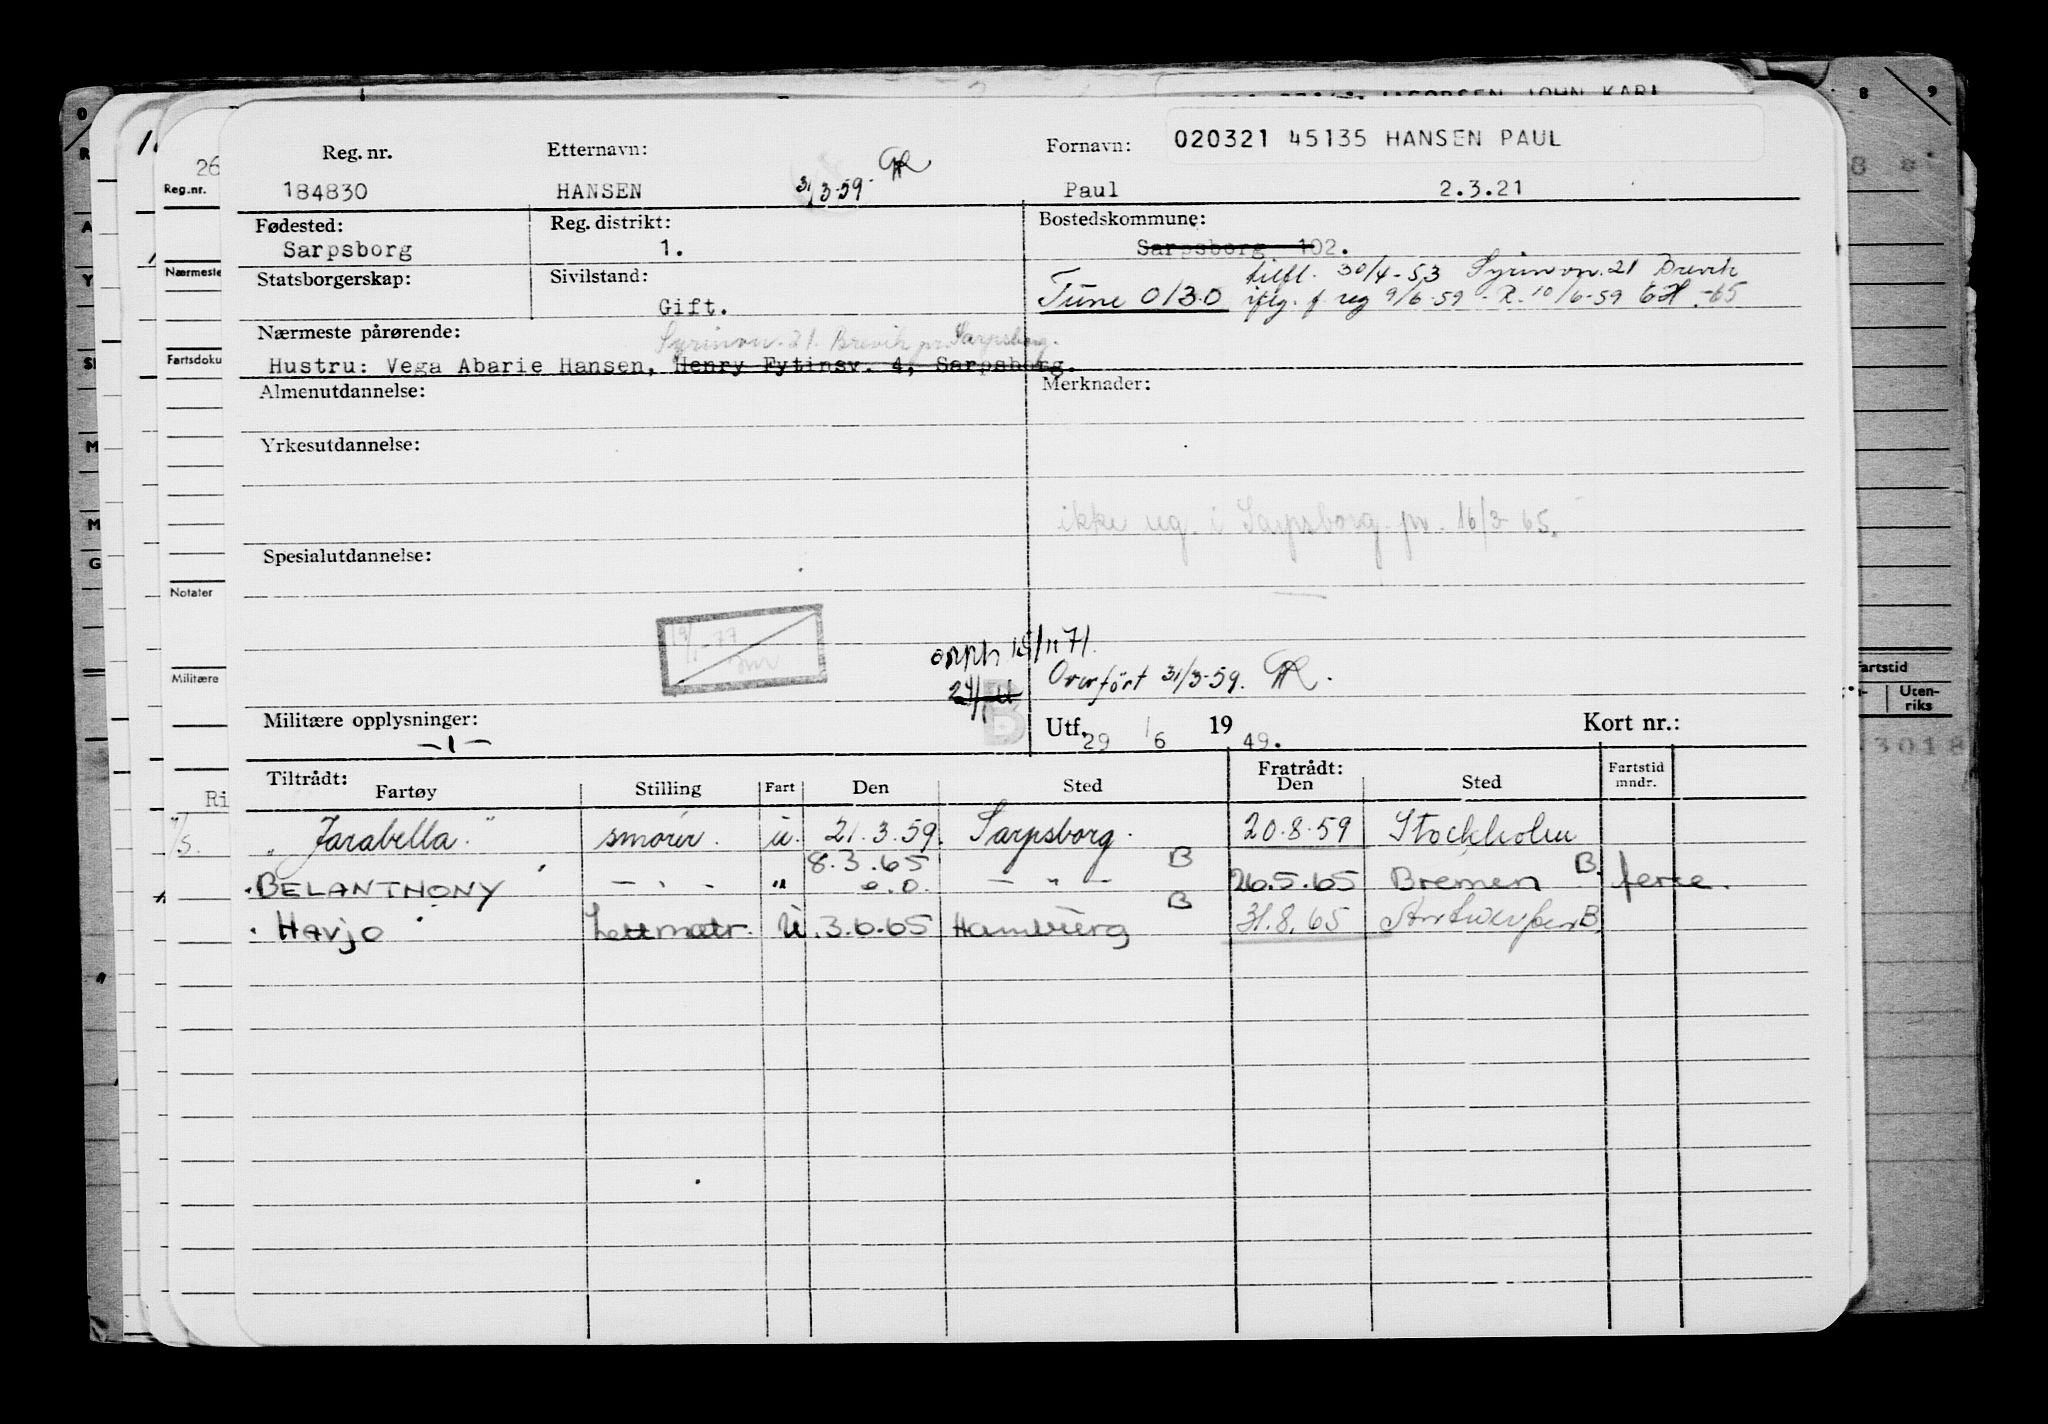 JACOBSEN JOHN KARL
8 9
020321 45135 HANSEN PAUL
Reg. nr. Etternavn: Fornavn:
184830 HANSEN 31/3-59 Paul 2.3.21
Fødested: Reg. distrikt: Bostedskommune:
Sarpsborg 1. Sarpsborg 102.
tilfl. 30/4-53 Syrinvn. 21 Brevik
Statsborgerskap: Sivilstand:
Tune 0130 iflg. f. reg 9/6-59 - R. 10/6-59 -65
Gift.
Nærmeste pårørende:
Syrinvn. 21. Brevik pr. Sarpsborg.
Hustru: Vega Abarie Hansen, Henry Fytinsv. 4, Sarpsborg.
Almenutdannelse: Merknader:
Yrkesutdannelse:
ikke reg. i Sarpsborg pr. 16/3-65.
Spesialutdannelse:
19/1-77
15/11 71.
Overført 31/3-59.
B
Militære opplysninger: Utf. 29/6 1949. Kort nr.:
-1-
Tiltrådt: Fratrådt: Fartstid
Fartøy Stilling Fart Den Sted Den Sted mndr.
"Jarabella." smører. u. 21.3.59. Sarpsborg. 20.8.59 Stockholm
8.3.65 B
BELANTHONY - " - " o.o. - " - 26.5.65 Bremen B. ferie.
B
Havjo Lettmatr. U. 3.6.65 Hamburg 31.8.65 Antwerpen B.
26
Reg.nr.
Nærmeste
Fartsdoku
Notater
Militære
Ri
Fartstid
Uten-
riks
3018